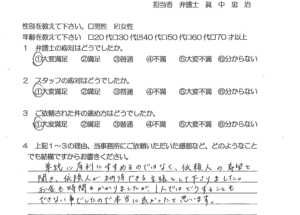 担当者 弁護士 眞中忠治
性別を教えて下さい。 □男性 ☑女性
年齢を教えて下さい □20代□30代☑40代□50代□60代□70才以上
1 弁護士の応対はどうでしたか。
①大変満足 ②満足 ③普通 ④不満 ⑤大変不満 ⑥分からない
2 スタッフの応対はどうでしたか。
①大変満足 ②満足 ③普通 ④不満 ⑤大変不満 ⑥分からない
3 ご依頼された件の進め方はどうでしたか。
①大変満足 ②満足 ③普通 ④不満 ⑤大変不満 ⑥分からない
4 上記1～3の理由、当事務所にご依頼いただいた感想など、どのようなこと
でも結構ですからお書きください。
単純に有利にすすめるのではなく、依頼人の希望を
聞き、依頼人が納得できる
お金も時間もかかりましたが、1人ではどうすることも
できない事でしたので本当に良かったと思います。